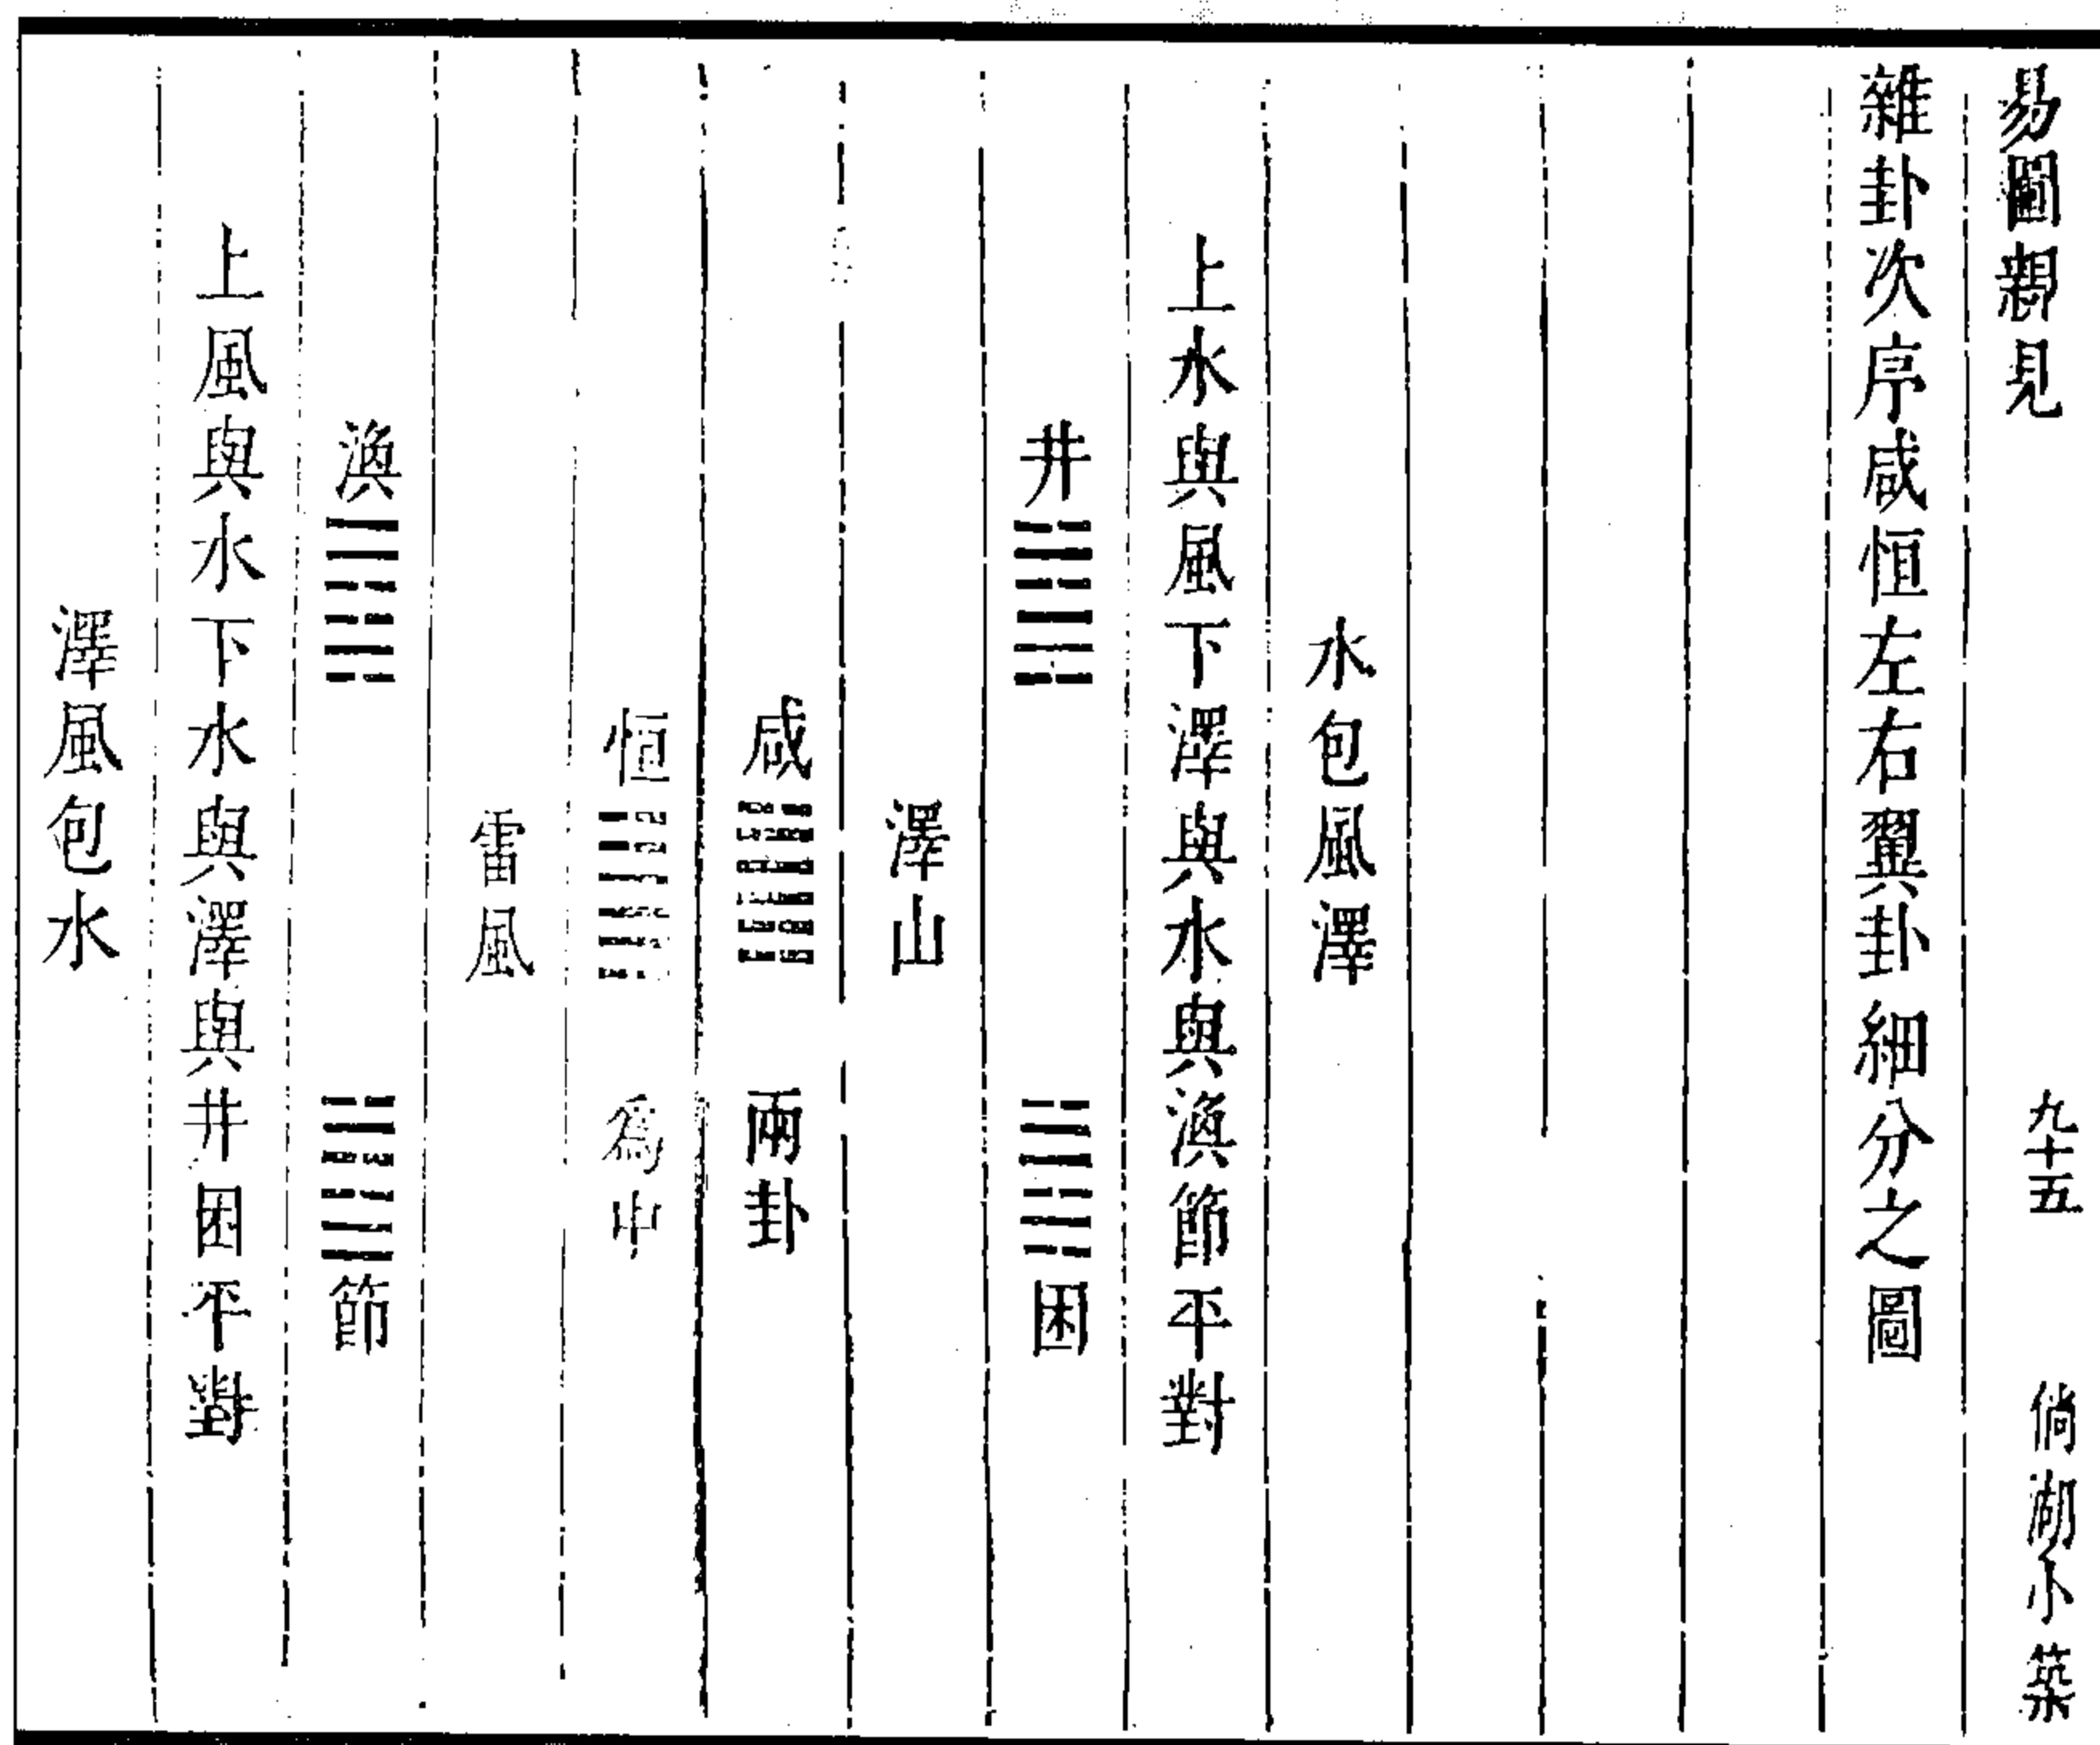 易圖親見 九十五 倘湖小築
雜卦次序咸恒左右翼卦細分之圖
水包風澤
上水與風下澤與水與渙節平對
井䷯ ䷮困
澤山
咸䷞ 兩卦
恒䷟ 為中
雷風
渙䷺ ䷻節
上風與水下水與澤與井困平對
澤風包水